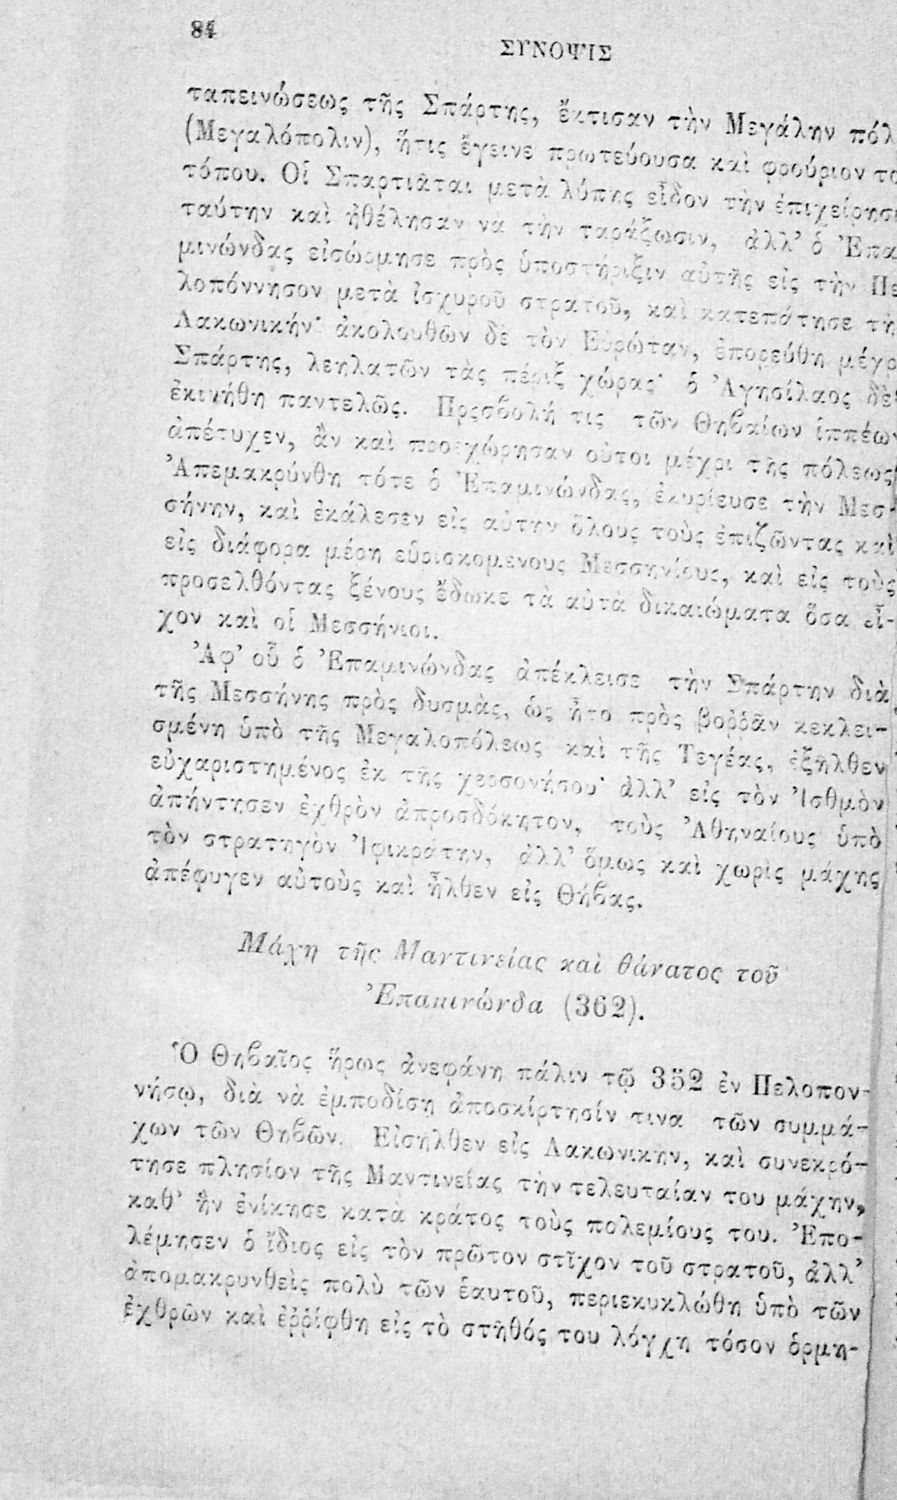 84
ΣΥΝΟΨΙΣ
ταπεινώσεως τῆς Σπάρτης, ἔκτισαν τὴν Μεγάλην πόλ
(Μεγαλόπολιν), ἥτις ἔγεινε πρωτεύουσα καὶ φρούριον το
τόπου. Οἱ Σπαρτιᾶται μετὰ λύπης εἶδον τὴν ἐπιχείρησι
ταύτην καὶ ἠθέλησαν νὰ τὴν ταράξωσιν, ἀλλ' ὁ Ἐπα
μινώνδας εἰσώρμησε πρὸς ὑποστήριξιν αὐτῆς εἰς τὴν Πε
λοπόννησον μετὰ ἰσχυροῦ στρατοῦ, καὶ κατεπάτησε τὴ
Λακωνικήν· ἀκολουθῶν δὲ τὸν Εὐρώταν, ἐπορεύθη μέχρ
Σπάρτης, λεηλατῶν τὰς πέριξ χώρας· ὁ Ἀγησίλαος δὲ
ἐκινήθη παντελῶς. Προσβολή τις τῶν Θηβαίων ἱππέων
ἀπέτυχεν, ἂν καὶ προεχώρησαν οὗτοι μέχρι τῆς πόλεως
Ἀπεμακρύνθη τότε ὁ Ἐπαμινώνδας, ἐκυρίευσε τὴν Μεσ-
σήνην, καὶ ἐκάλεσεν εἰς αὐτὴν ὅλους τοὺς ἐπιζῶντας καὶ
εἰς διάφορα μέρη εὑρισκομένους Μεσσηνίους, καὶ εἰς τοὺς
προσελθόντας ξένους ἔδωκε τὰ αὐτὰ δικαιώματα ὅσα εἶ-
χον καὶ οἱ Μεσσήνιοι.
Ἀφ' οὗ ὁ Ἐπαμινώνδας ἀπέκλεισε τὴν Σπάρτην διὰ
τῆς Μεσσήνης πρὸς δυσμὰς, ὡς ἦτο πρὸς βοῤῥᾶν κεκλει-
σμένη ὑπὸ τῆς Μεγαλοπόλεως καὶ τῆς Τεγέας, ἐξῆλθεν
εὐχαριστημένος ἐκ τῆς χερσονήσου· ἀλλ' εἰς τὸν Ἰσθμὸν
ἀπήντησεν ἐχθρὸν ἀπροσδόκητον, τοὺς Ἀθηναίους ὑπὸ
τὸν στρατηγὸν Ἰφικράτην, ἀλλ' ὅμως καὶ χωρὶς μάχης
ἀπέφυγεν αὐτοὺς καὶ ἦλθεν εἰς Θήβας.
Μάχη τῆς Μαντινείας καὶ θάνατος τοῦ
Ἐπαμινώνδα (362).
Ὁ Θηβαῖος ἥρως ἀνεφάνη πάλιν τῷ 352 ἐν Πελοπον-
νήσῳ, διὰ νὰ ἐμποδίσῃ ἀποσκίρτησίν τινα τῶν συμμά-
χων τῶν Θηβῶν. Εἰσῆλθεν εἰς Λακωνικὴν, καὶ συνεκρό-
τησε πλησίον τῆς Μαντινείας τὴν τελευταίαν του μάχην,
καθ' ἣν ἐνίκησε κατὰ κράτος τοὺς πολεμίους του. Ἐπο-
λέμησεν ὁ ἴδιος εἰς τὸν πρῶτον στῖχον τοῦ στρατοῦ, ἀλλ'
ἀπομακρυνθεὶς πολὺ τῶν ἑαυτοῦ, περιεκυκλώθη ὑπὸ τῶν
ἐχθρῶν καὶ ἐῤῥίφθη εἰς τὸ στῆθός του λόγχη τόσον ὁρμη-